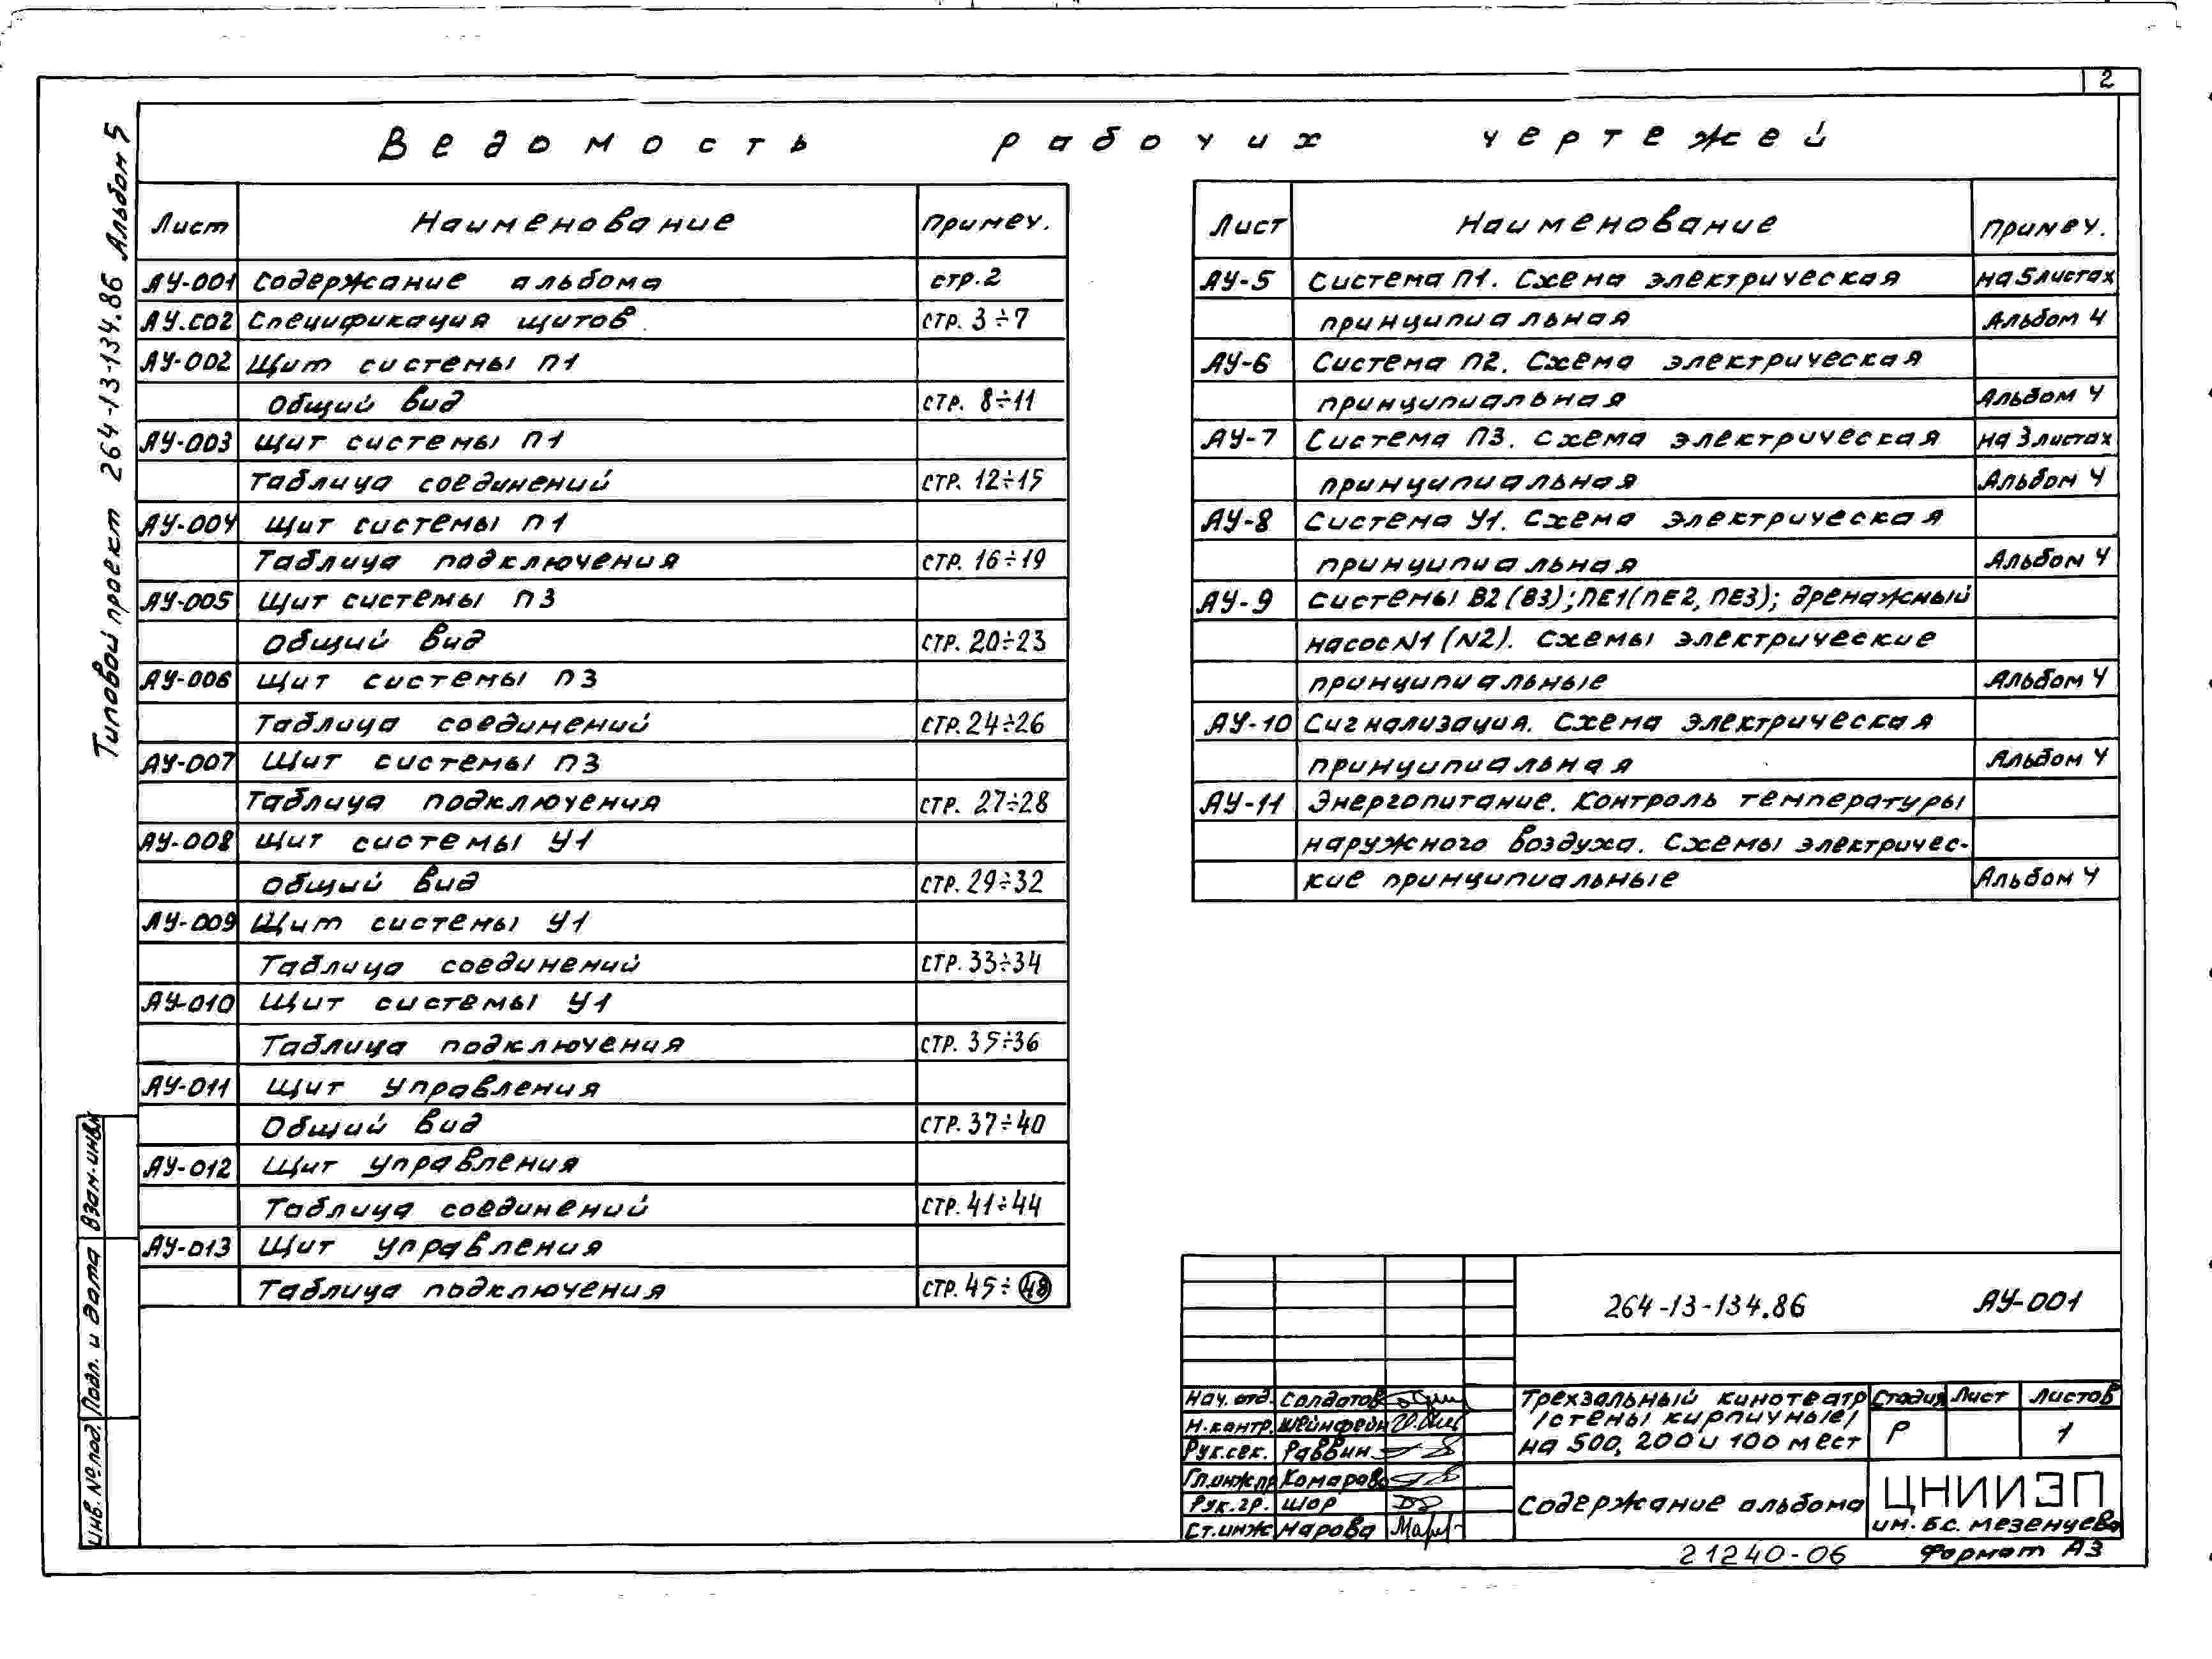 2
Типовой проект 264-13-134.86 Альбом 5
Ведомость рабочих чертежей
Лист Наименование Примеч.
АУ-001 Содержание альбома стр.2
АУ.СО2 Спецификация щитов стр. 3÷7
АУ-002 Щит системы П1
Общий вид стр. 8÷11
АУ-003 Щит системы П1
Таблица соединений стр. 12÷15
АУ-004 Щит системы П1
Таблица подключения стр. 16÷19
АУ-005 Щит системы П3
Общий вид стр. 20÷23
АУ-006 Щит системы П3
Таблица соединений стр. 24÷26
АУ-007 Щит системы П3
Таблица подключения стр. 27÷28
АУ-008 Щит системы У1
Общий вид стр. 29÷32
АУ-009 Щит системы У1
Таблица соединений стр. 33÷34
АУ-010 Щит системы У1
Таблица подключения стр. 35÷36
АУ-011 Щит управления
Общий вид стр. 37÷40
АУ-012 Щит управления
Таблица соединений стр. 41÷44
АУ-013 Щит управления
Таблица подключения стр. 45÷48
Лист Наименование Примеч.
АУ-5 Система П1. Схема электрическая на 5 листах
принципиальная Альбом 4
АУ-6 Система П2. Схема электрическая
принципиальная Альбом 4
АУ-7 Система П3. Схема электрическая на 3 листах
принципиальная Альбом 4
АУ-8 Система У1. Схема электрическая
принципиальная Альбом 4
АУ-9 Системы В2 (В3); ПЕ1(ПЕ2, ПЕ3); дренажный
насос N1 (N2). Схемы электрические
принципиальные Альбом 4
АУ-10 Сигнализация. Схема электрическая
принципиальная Альбом 4
АУ-11 Энергопитание. Контроль температуры
наружного воздуха. Схемы электричес-
кие принципиальные Альбом 4
Взам. инв.N
Подп. и дата
Инв. № под.
264-13-134.86 АУ-001
Нач. отд. Солдатов
Н. контр. Шейнфейн
Рук. сек. Раввин
Гл.инж.пр Комарова
Рук. гр. Шор
Ст.инж Нарова
Трехзальный кинотеатр
/стены кирпичные/
на 500, 200 и 100 мест
Стадия Лист Листов
Р 1
Содержание альбома
ЦНИИЭП
им. Б.С. Мезенцева
21240-06 Формат А3